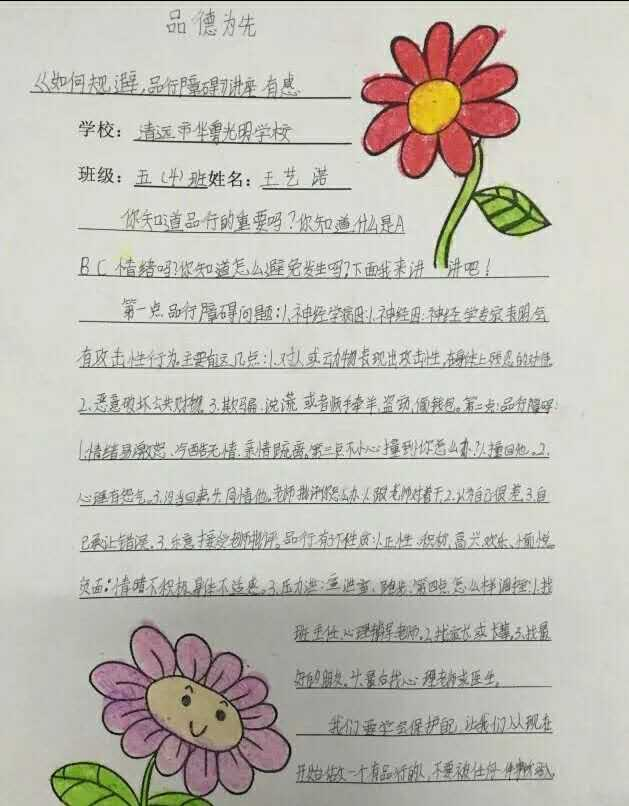 品德为先
《如何规避,品行障碍》讲座有感
学校: 清远市华粤光明学校
班级: 五(4)班姓名: 王艺诺
你知道品行的重要吗?你知道什么是A
BC情绪吗?你知道怎么避免发生吗?下面我来讲一讲吧!
第一点品行障碍问题:1.神经学病因:1.神经因:神经学专家表明会
有攻击性行为。主要有这几点:1.对人或动物表现出攻击性,在身体上残忍的对待。
2.恶意破坏公共财物。3.欺骗、说谎或者顺手牵羊、盗动、偷钱包。第二点:品行障碍:
1.情绪易激怒、冷酷无情、亲情疏离。第三点不小心撞到你怎么办:1.撞回他。2.
心理有怨气。3.没当回事。4.同情他。老师批评你怎么办:1.跟老师对着干。2.认为自己很差。3.自
己承认错误。3.乐意接受老师批评。品行有3个性质:1.正性:积极、高兴、欢乐、愉悦。
负面:情绪不积极,身体不适感。3.压力
第四点怎么样调控:1.找
班主任、心理辅导老师。2.找家长或长辈。3.找最
好的朋友。4.最后找心理老师或医生。
我们要学会保护自己,让我们从现在
开始做一个有品行的人,不要被任何一件事